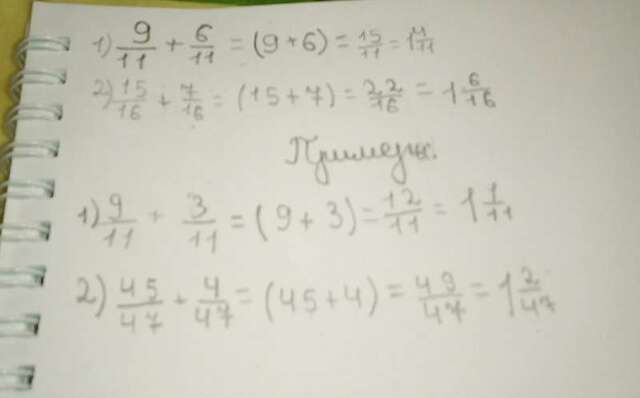 1) 9/11 + 6/11 = (9+6) = 15/11 = 1 4/11
2) 15/16 + 7/16 = (15+7) = 22/16 = 1 6/16
Примеры.
1) 9/11 + 3/11 = (9+3) = 12/11 = 1 1/11
2) 45/47 + 4/47 = (45+4) = 49/47 = 1 2/47